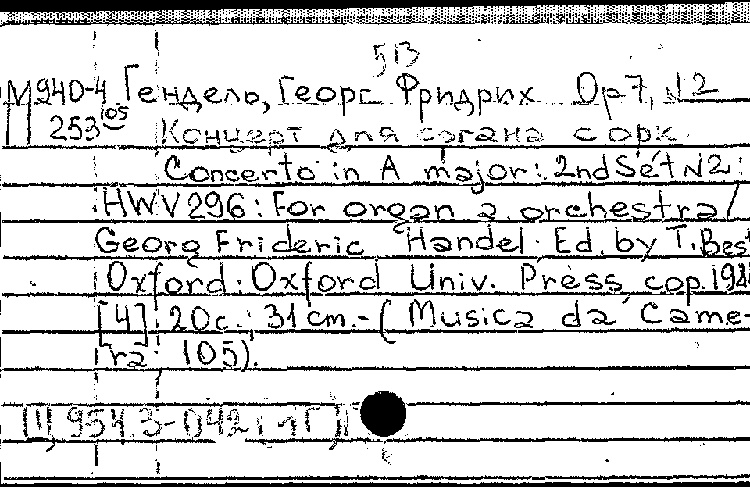 513
М940-4 Гендель, Георг Фридрих Op 7, N2
253 105 Концерт для органа с орк.
Concerto in A major: 2nd Set N2:
HWV 296: For organ a. orchestra /
Georg Frideric Handel. Ed. by T. Best
Oxford: Oxford Univ. Press cop. 198
[4], 20 с.; 31 cm. - (Musica da Came-
ra 105).
954.3-042